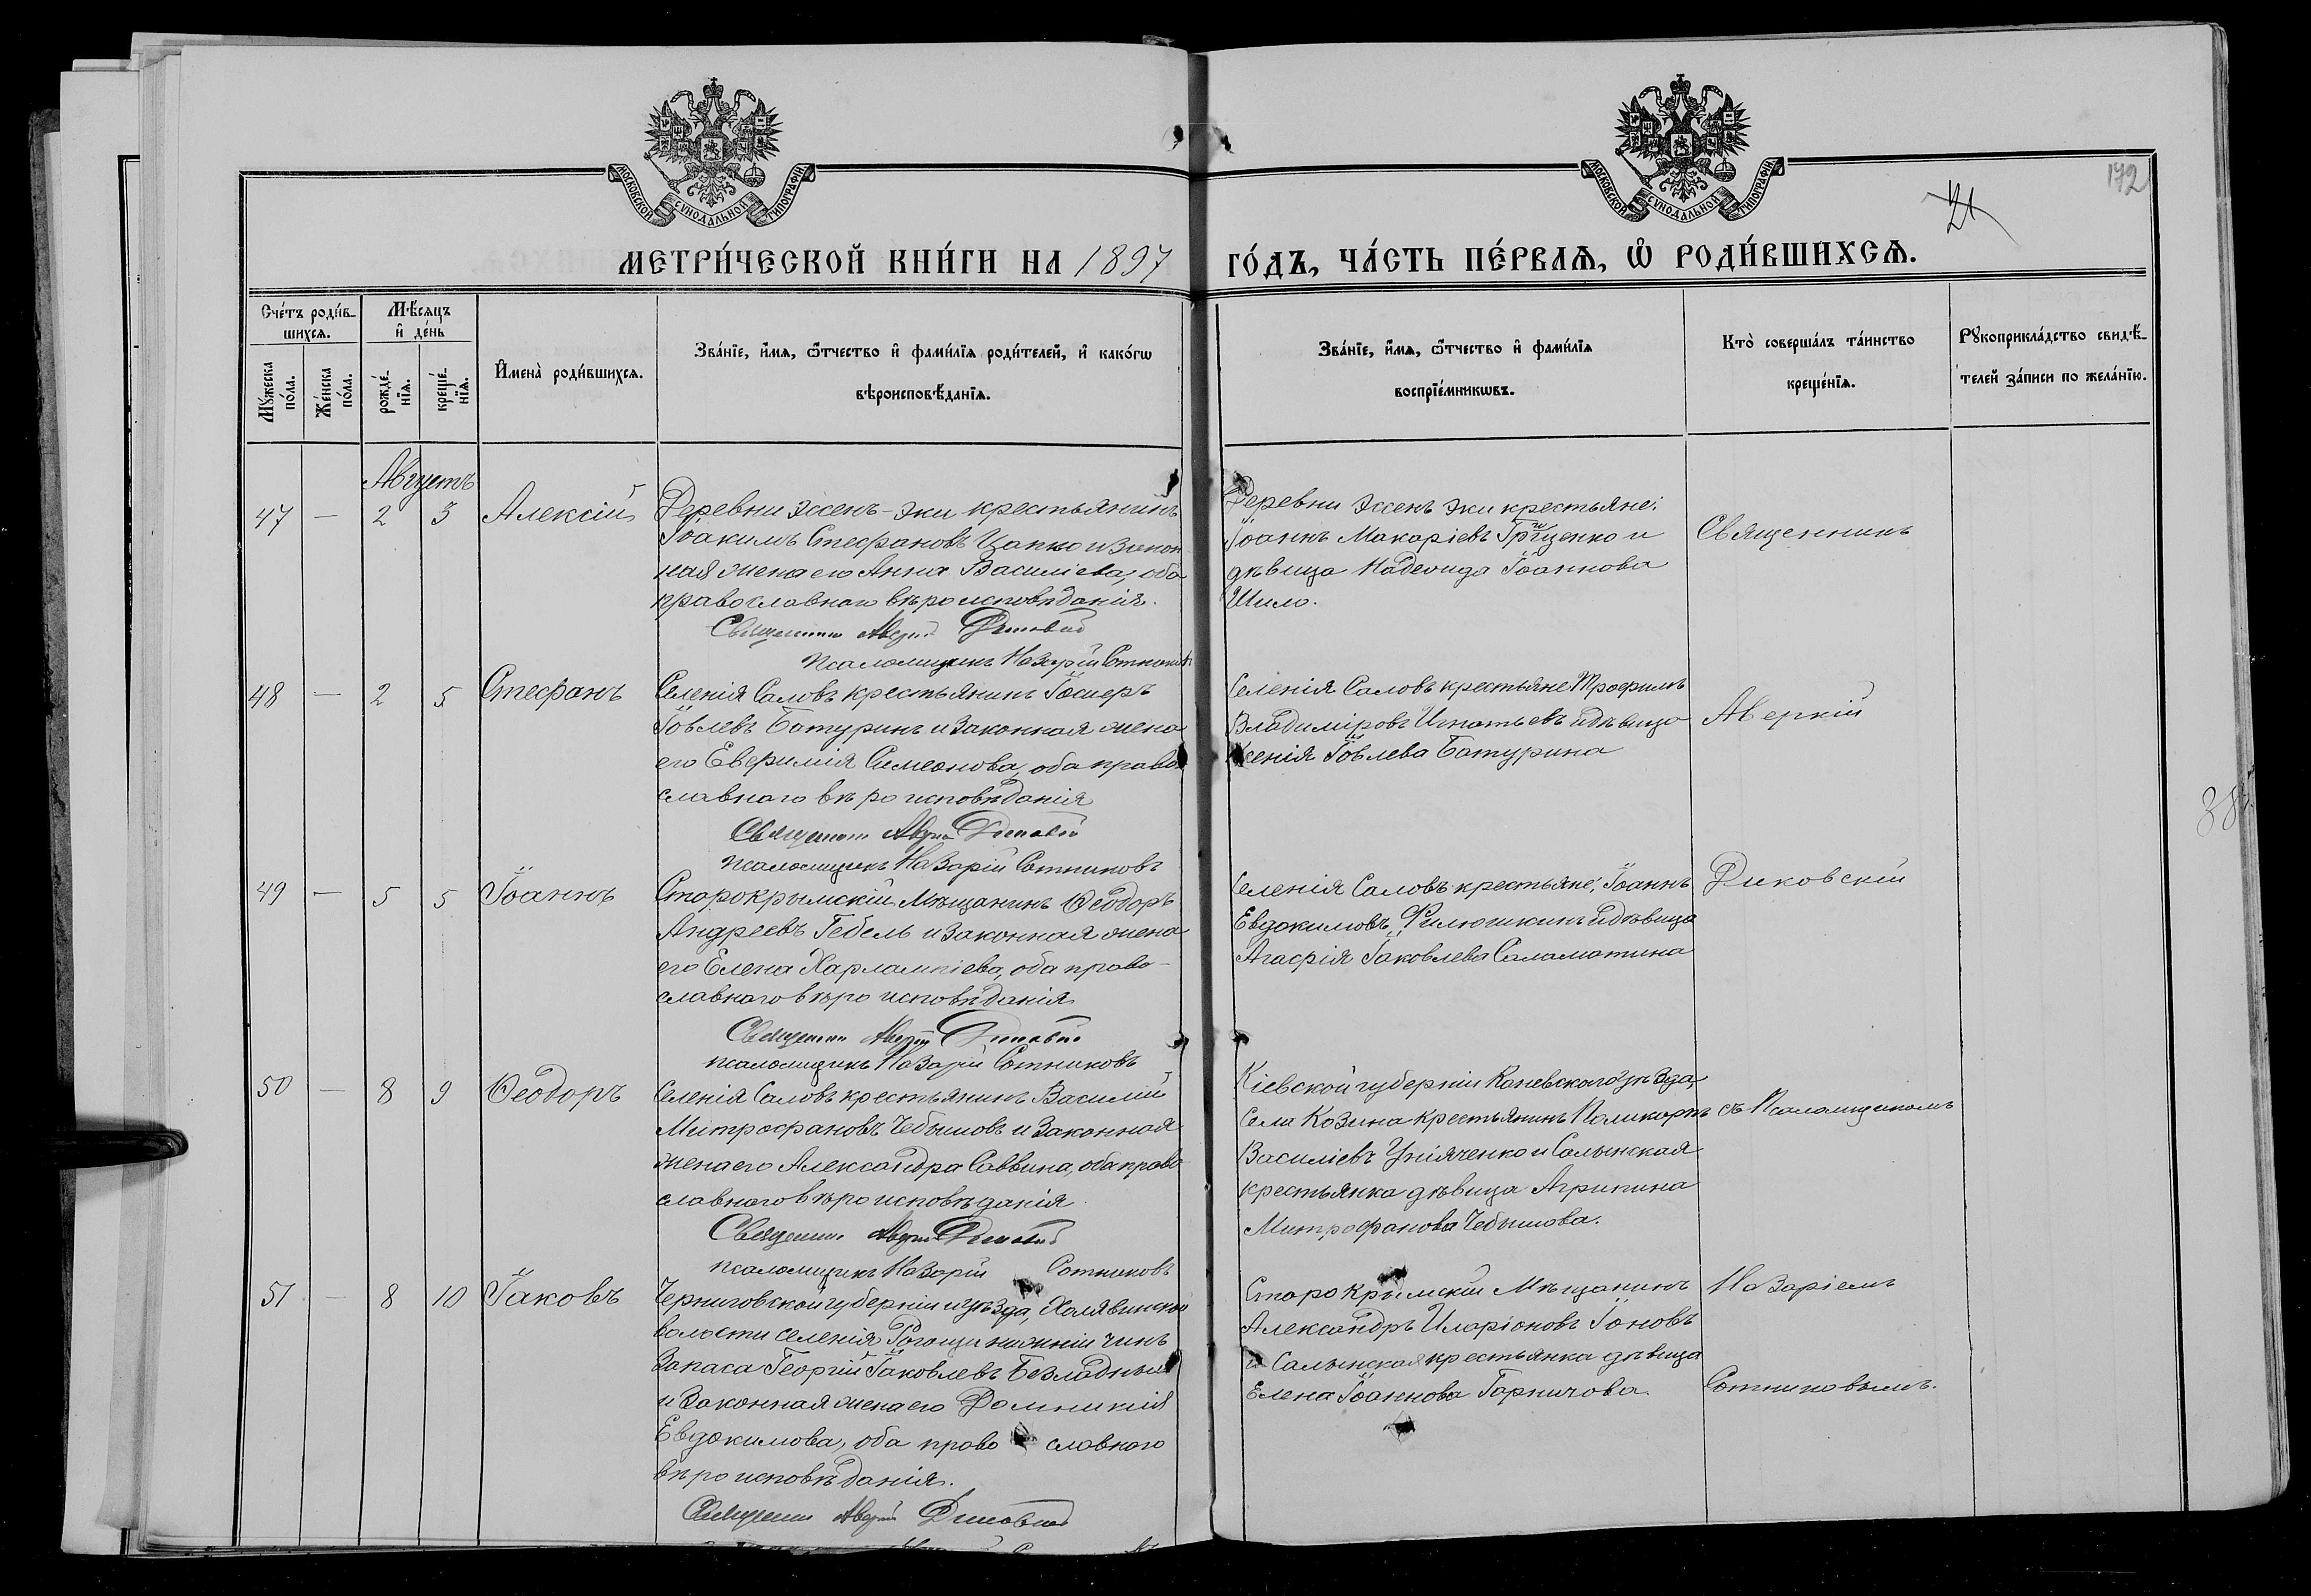 МОСКОВСКОЙ СУНОДАЛЬНОЙ ТИПОГРАФІИ
МЕТРИ́ЧЕСКОЙ КНИ́ГИ НА 1897
Сче́тъ роди́в-
шихсѧ.
Мѣ́сѧцъ
и҆ де́нь
Мꙋ́жеска
по́ла.
Же́нска
по́ла.
рожде́-
нїѧ.
креще́-
нїѧ.
И҆мена̀ роди́вшихсѧ.
Зва́нїе, и҆́мѧ, ѻ҆́тчество и҆ фами́лїѧ роди́телей, и҆ како́гѡ
вѣроисповѣ́данїѧ.
Августъ
47 — 2 3 Алексій
Деревни Эссенъ-Эки крестьянинъ
Іоакимъ Стефановъ Цапко и закон
ная жена его Анна Василіева, оба
православнаго вѣроисповѣданія.
Священникъ Аверкій Диковскій
Псаломщикъ Назарій Сотниковъ
48 — 2 5 Стефанъ
Селенія Саловъ крестьянинъ
Іовлевъ Батуринъ и законная жена
его Евфимія Симеонова, оба право
славнаго вѣроисповѣданія
Священникъ Аверкій Диковскій
Псаломщикъ Назарій Сотниковъ
49 — 5 5 Іоаннъ
Старокрымскій Мѣщанинъ Ѳеодоръ
Андреевъ Гебель и законная жена
его Елена Харлампіева, оба право-
славнаго вѣроисповѣданія
Священникъ Аверкій Диковскій
Псаломщикъ Назарій Сотниковъ
50 — 8 9 Ѳеодоръ
Селенія Саловъ крестьянинъ Василій
Митрофановъ Чебышовъ и законная
жена его Александра Саввина, оба право
славнаго вѣроисповѣданія
Священникъ Аверкій Диковскій
Псаломщикъ Назарій Сотниковъ
51 — 8 10 Іаковъ
Черниговской губерніи и уѣзда, Халявинской
волости селенія Рогощи нижній чинъ
запаса Георгій Іаковлевъ Безладный
и законная жена его Домникія
Евдокимова, оба право славнаго
вѣроисповѣданія.
Священникъ Аверкій Диковскій
МОСКОВСКОЙ СУНОДАЛЬНОЙ ТИПОГРАФІИ
21
172
ГО́ДЪ, ЧА́СТЬ ПЕ́РВАѦ, Ѡ҆ РОДИ́ВШИХСѦ.
Зва́нїе, и҆́мѧ, ѻ҆́тчество и҆ фами́лїѧ
воспрїе́мникѡвъ.
Кто̀ соверша́лъ та́инство
креще́нїѧ.
Рꙋкоприкла́дство свидѣ́-
телей за́писи по жела́нїю.
Деревни Эссенъ Эки крестьяне:
Іоаннъ Макаріевъ Грищенко и
дѣвица Надежда Іоаннова
Шило.
Священникъ
Селенія Саловъ крестьяне Трофимъ
Владиміровъ Игнатьевъ и дѣвица
Ксенія Іовлева Батурина
Аверкій
Селенія Саловъ крестьяне: Іоаннъ
Евдокимовъ Филюшкинъ и дѣвица
Агафія Іаковлева Саламатина
Диковскій
Кіевской губерніи Каневскаго уѣзда
Села Козина крестьянинъ Поликарпъ
Василіевъ Уніяченко и Салынская
крестьянка дѣвица Агрипина
Митрофанова Чебышова.
съ Псаломщикомъ
Старокрымскій Мѣщанинъ
Александръ Иларіоновъ Іоновъ
и Салынская крестьянка дѣвица
Елена Іоаннова Горничова.
Назаріемъ
Сотниковымъ.